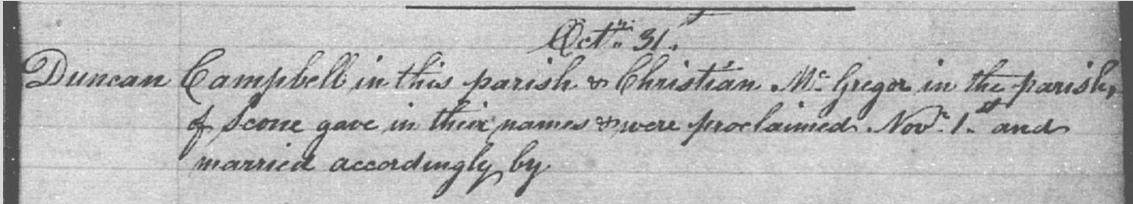 Octr. 31.
Duncan Campbell in this parish & Christian Mc Gregor in the parish,
of Scone gave in their names & were proclaimed. Novr. 1.st and
married accordingly by